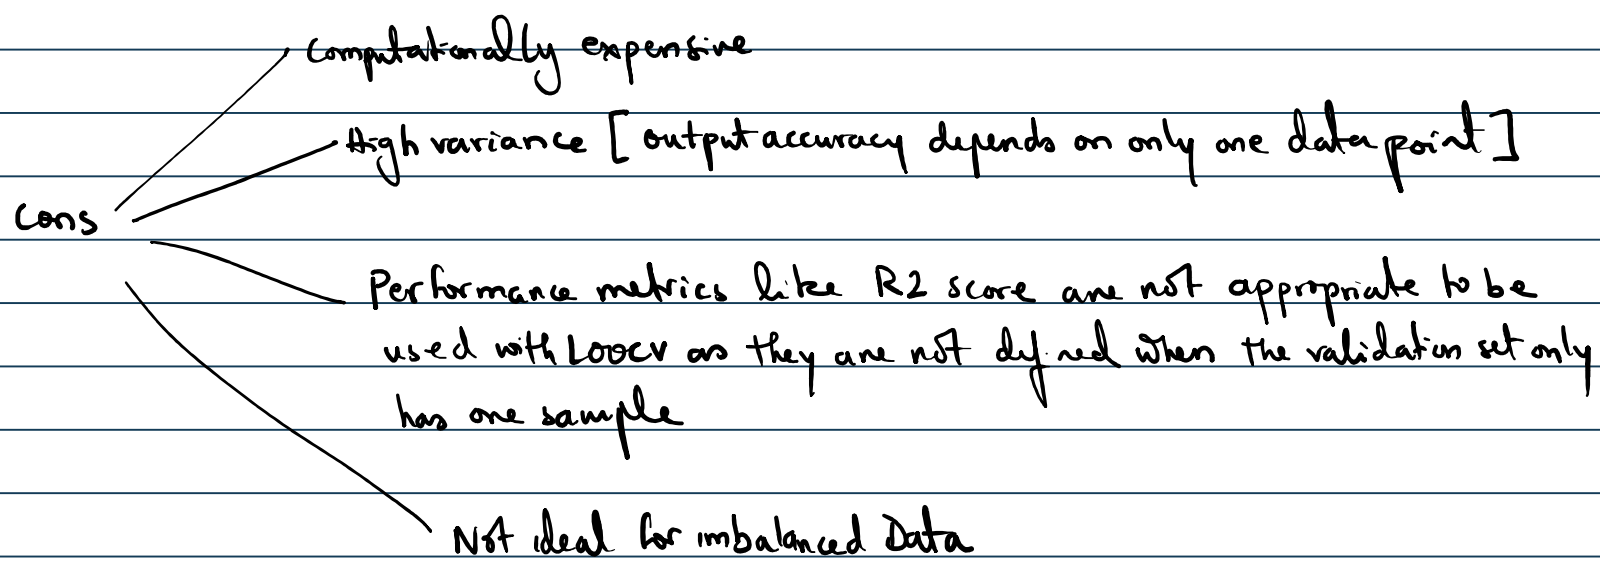 Computationally expensive
High variance [output accuracy depends on only one data point]
Cons
Performance metrics like R2 score are not appropriate to be
used with LOOCV as they are not defined when the validation set only
has one sample
Not ideal for imbalanced Data